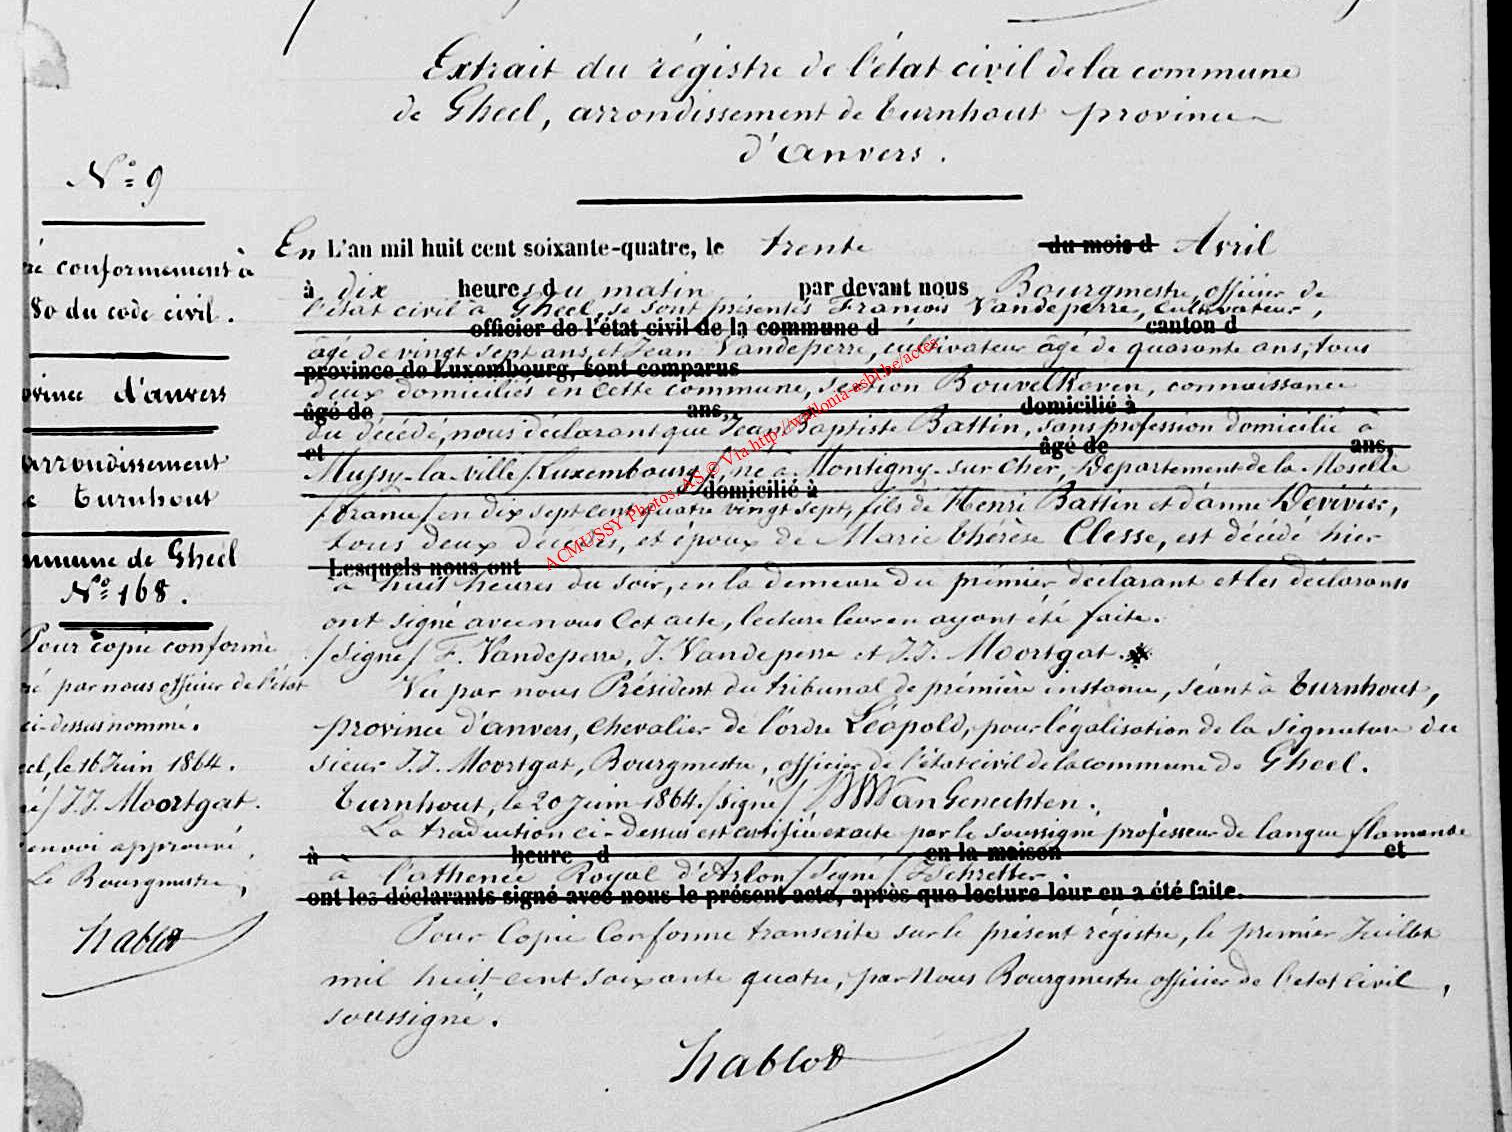 Extrait du régistre de l'état civil de la commune
de Gheel, arrondissement de Turnhout province
d'anvers.
N° 9
ré conformement à
80 du code civil.
ovince d'anvers
arrondissement
e Turnhout
mmune de Gheel
N° 168.
Pour copie conforme
ré par nous officier de l'état
ci-dessus nommé.
eel, le 16 Juin 1864.
né/ J.J. Moortgat.
envoi approuvé,
Le Bourgmestre,
Nablot
En L'an mil huit cent soixante-quatre, le trente du mois d Avril
à dix heures du matin par devant nous Bourgmestre, officier de
l'état civil à Gheel, se sont présentés François Vandeperre, cultivateur,
officier de l'état civil de la commune d canton d
âgé de vingt sept ans et Jean Vandeperre, cultivateur âgé de quarante ans, tous
province de Luxembourg, sont comparus
deux domiciliés en cette commune, section Bouvelkoven, connaissance
âgé de ans, domicilié à
du décédé, nous déclarant que Jean Baptiste Battin, sans profession domicilié à
et âgé de ans,
Mussy-la-ville/Luxembourg/ né à Montigny-sur-Cher, Departement de la Moselle
domicilié à
/france/ en dix sept cent quatre vingt sept, fils de Henri Battin et d'anne Devivier,
tous deux décédés, et époux de Marie thérèse Clesse, est décédé hier
Lesquels nous ont
à huit heures du soir, en la demeure du prémier déclarant et les déclarants
ont signé avec nous Cet acte, lecture leur en ayant été faite.
/signé/ F. Vandeperre, J. Vandeperre et J.J. Moortgat.
Vu par nous Président du tribunal de prémière instance, séant à Turnhout,
province d'anvers, chevalier de l'ordre Léopold, pour légalisation de la signature du
sieur J.J. Moortgat, Bourgmestre, officier de l'état civil de la commune de Gheel.
Turnhout, le 20 Juin 1864. /signé/ VanGenechten.
La traduction ci-dessus est certifiée exacte par le soussigné professeur de langue flamande
à heure d en la maison et
à l'athenée Royal d'Arlon /signé/ Schretter.
ont les déclarants signé avec nous le présent acte, après que lecture leur en a été faite.
Pour Copie Conforme transcrite sur le présent régistre, le prémier Juillet
mil huit-cent soixante quatre, par Nous Bourgmestre officier de l'état civil,
soussigné.
Nablot
ACMUSSY Photos AS © Via http://wallonia-asbl.be/actes